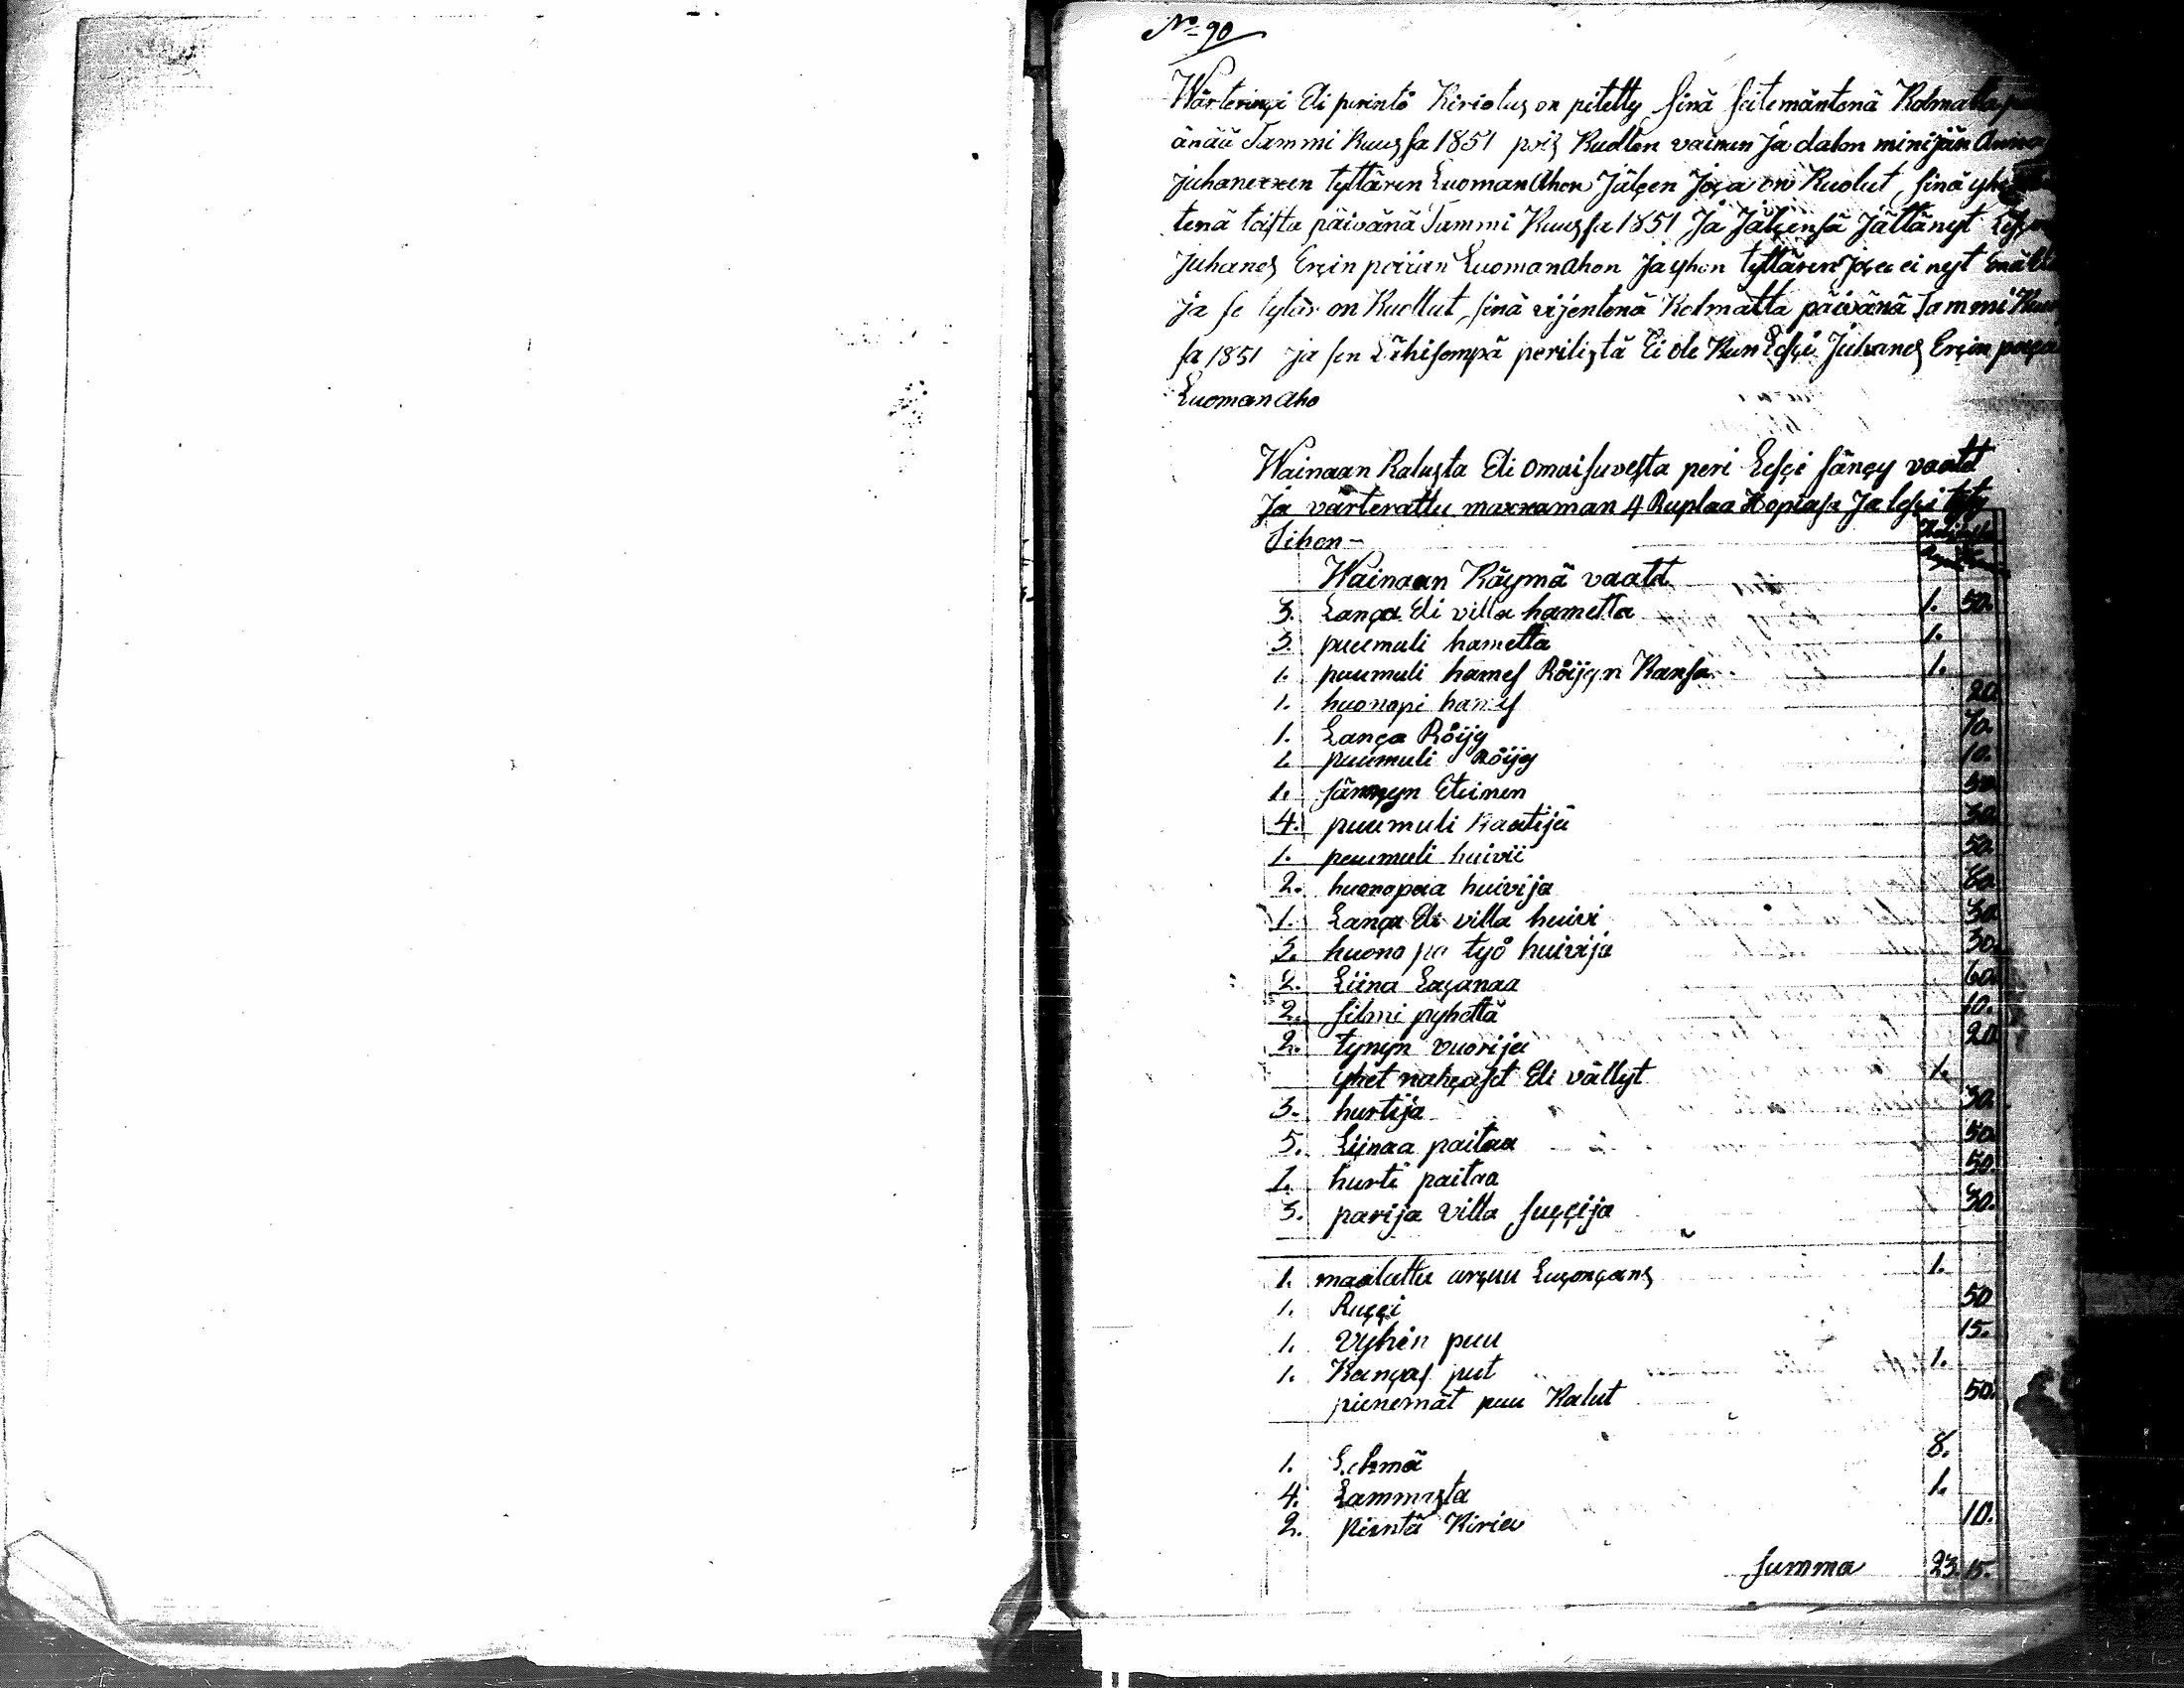 No 90
Wärteringi Eli perintö Kirioitus on pitetty Sinä Seitemäntenä Kolmatta
änää Tammi Kuussa 1851 pois Kuollen vaimon Ja dalon minijän Anna
Juhanexen tyttären LuomanAhon Jälçen Joça on Kuolut, Sinä yh
tenä toista päivänä Tammi Kuussa 1851 Ja Jälçensä Jättänyt
Juhanes Erçin poiian Luomanahon Ja yhen tyttären Joça ei nyt
ja se tytär on Kuollut, Sinä vijentenä Kolmatta päivänä Tammi
sa 1851 ja sen Lähisempä perilistä Ei ole Kun Lesçi Juhanes Erçin
LuomanAho
Wainaan Kalusta Eli omaisuvesta peri Lesçi Sänçy vaatet
Ja värterattu maxaman 4 Ruplaa Hopiasa Ja lesçi tyty
Sihen -
Wainaan Käymä vaatet
3. Lança Eli villa hametta 1. 50.
3. puumuli hametta 1.
1. puumuli hames Röijyn Kansa 1.
1. huonopi hames 20
1. Lança Röijy 70.
1. puumuli Röijy 10.
1. Sänçyn Eteinen 50
4. puumuli Kaatijä 30
1. puumuli huivii 50.
2. huonopaa huivija 60.
1. Lança Eli villa huivi 30
3. huono pa työ huivija 30.
2. Liina Laçanaa 60.
2. silmi pyhettä 10.
2. tynyn vuorija 20
yhet nahçaset Eli vällyt 1.
3. hurtija 30.
5. Lijnaa paitaa 50
1. hurti paitaa 50.
3. parija villa suççija 30.
1. maalattu arçuu Luçonçans 1.
1. Ruççi 50
1. Vyhin puu 15.
1. Kanças put 1.
pienemät puu Kalut 50.
1. Lehmä 8.
4. Lammasta 1.
2. pientä Kiria 10.
Summa 23. 15.